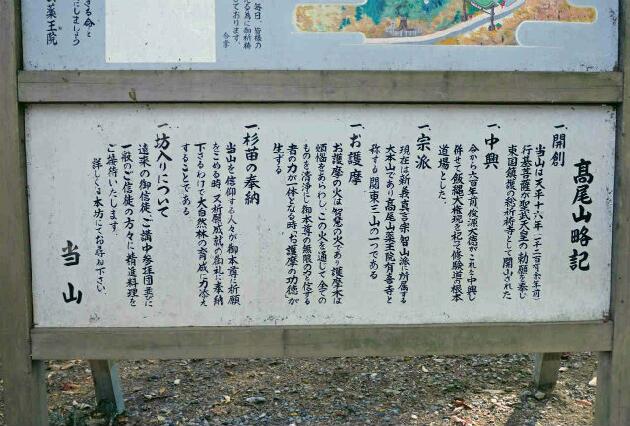 きる命と
しましょう
薬王院
毎日、皆様の
ております。
合掌
高尾山略記
一、開創
当山は天平十六年(一千二百有余年前)
行基菩薩が聖武天皇の勅願を奉じ
東国鎮護の総祈祷寺として開山された
一、中興
今から六百年前俊源大徳がこれを中興し
併せて飯縄大権現を祀って修験道の根本
道場とした。
一、宗派
現在は新義真言宗智山派に所属する
大本山であり高尾山薬王院有喜寺と
称する関東三山の一つである
一、お護摩
お護摩の火は智慧の火であり護摩木は
煩悩をあらわしこの火を通じて全ての
ものを清浄にし御本尊の無限の力と信ずる
者の力が一体となる時「お護摩の功徳」が
生ずる
一、杉苗の奉納
当山を信仰する人々が御本尊に祈願
をこめる時、又祈願成就の御礼に奉納
下さるわけで大自然林の育成に力添え
することである
一、坊入りについて
遠来の御信徒、ご講中、参拝団並びに
一般のご信徒の方々に精進料理を
ご接待いたします。
詳しくは本坊にてお尋ね下さい。
当山